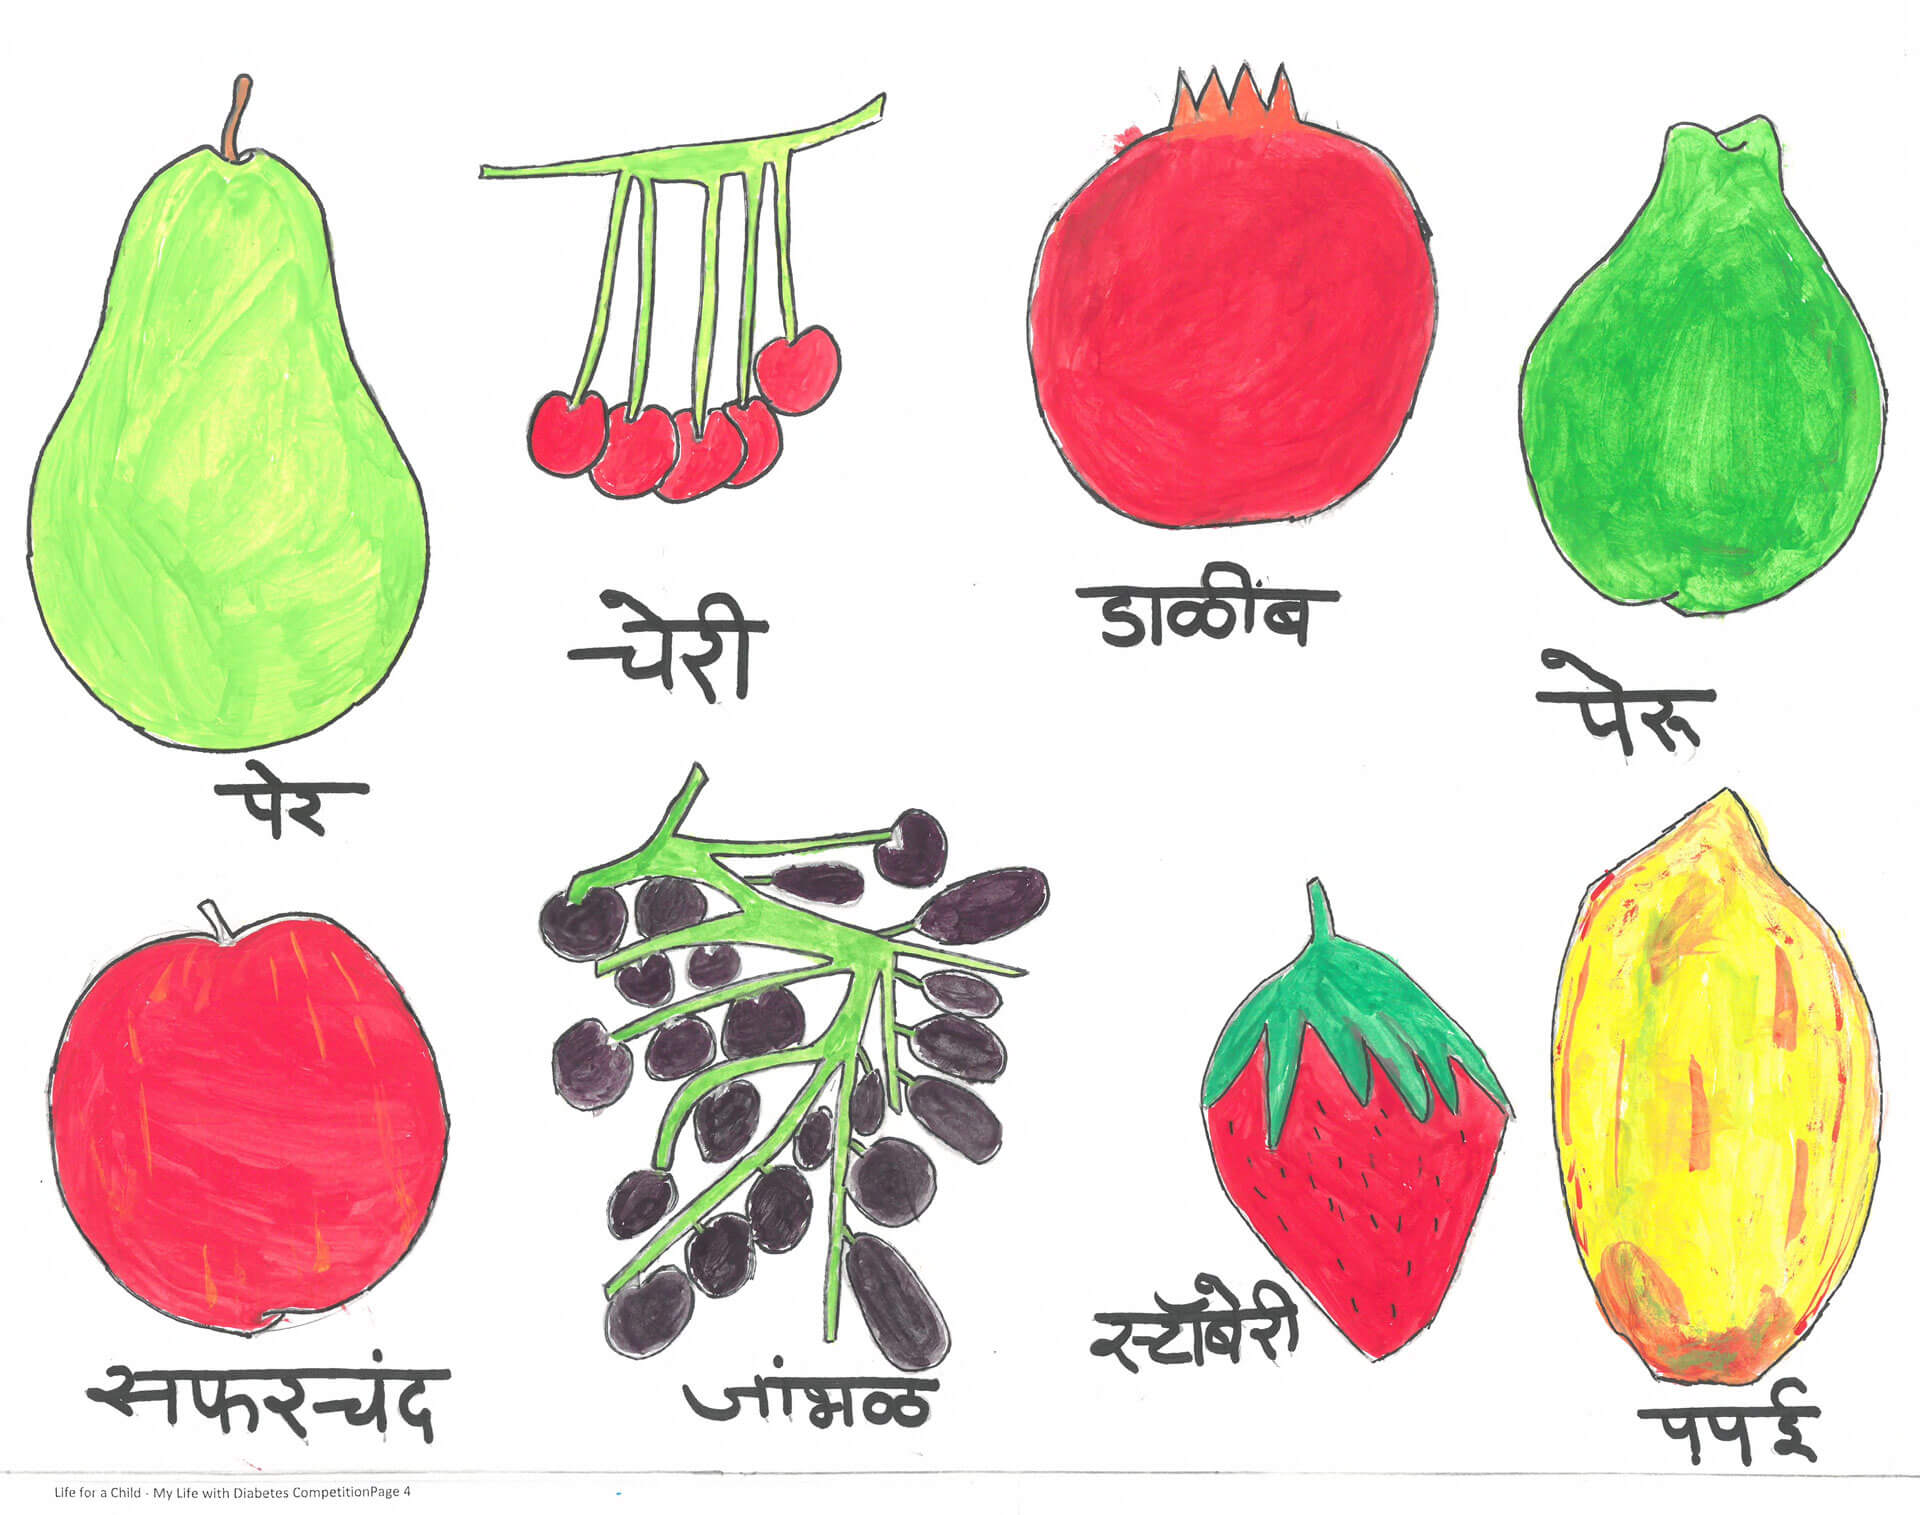 पेर
चेरी
डाळींब
पेरू
सफरचंद
जांभळ
स्टॉबेरी
पपई
Life for a Child - My Life with Diabetes CompetitionPage 4